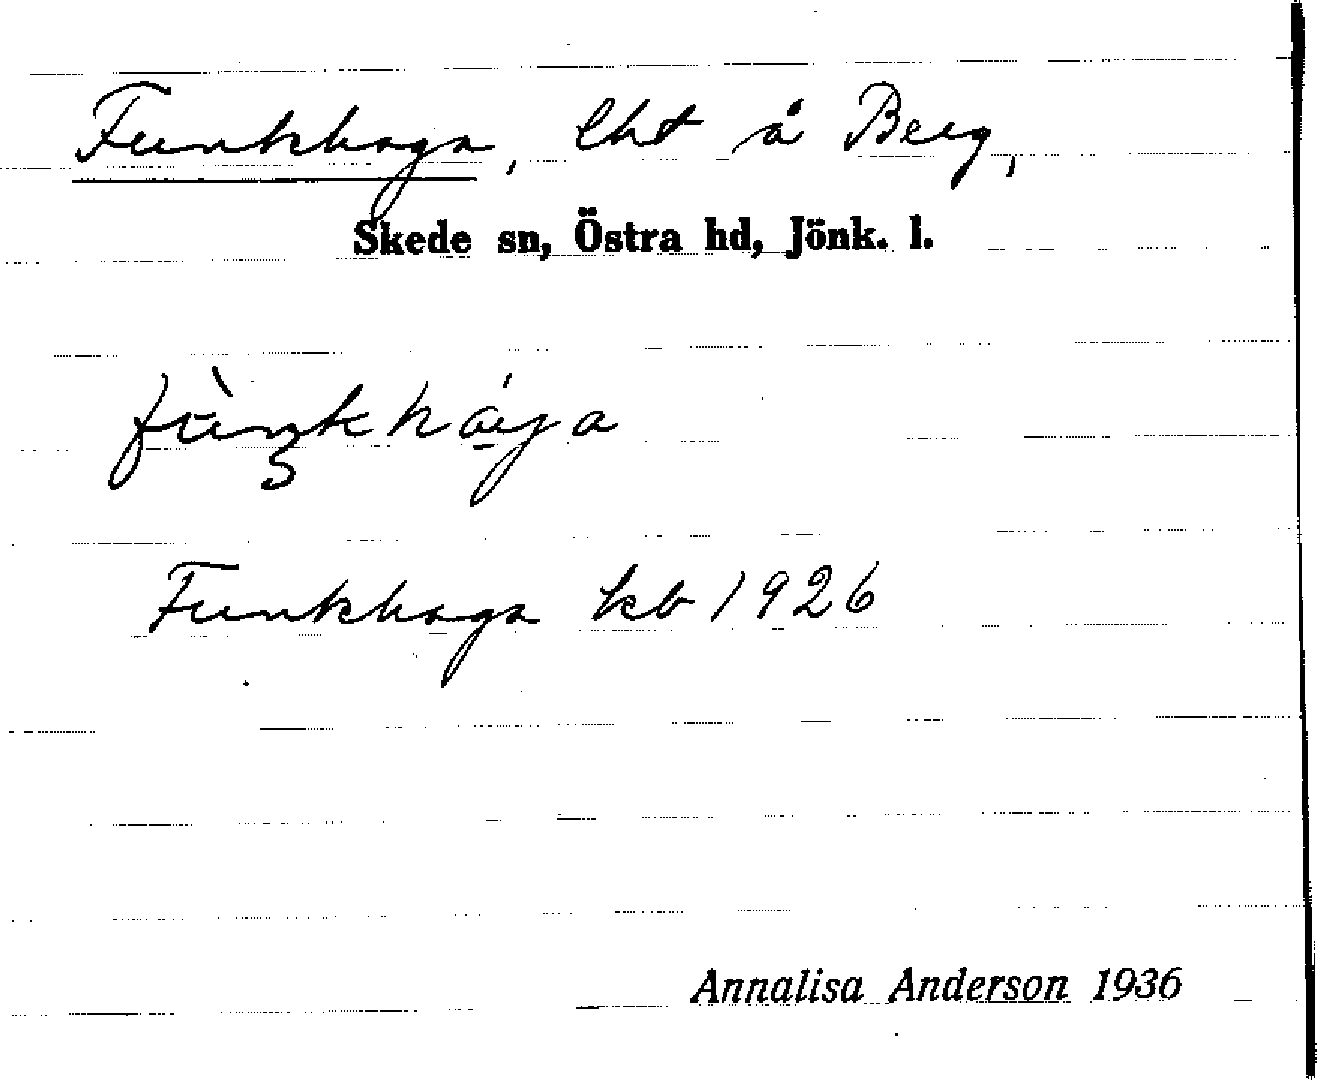 Funkhaga, lht å Berg,
Skede sn, Östra hd, Jönk. l.
fùŋkhága
Funkhaga kb 1926
Annalisa Anderson 1936